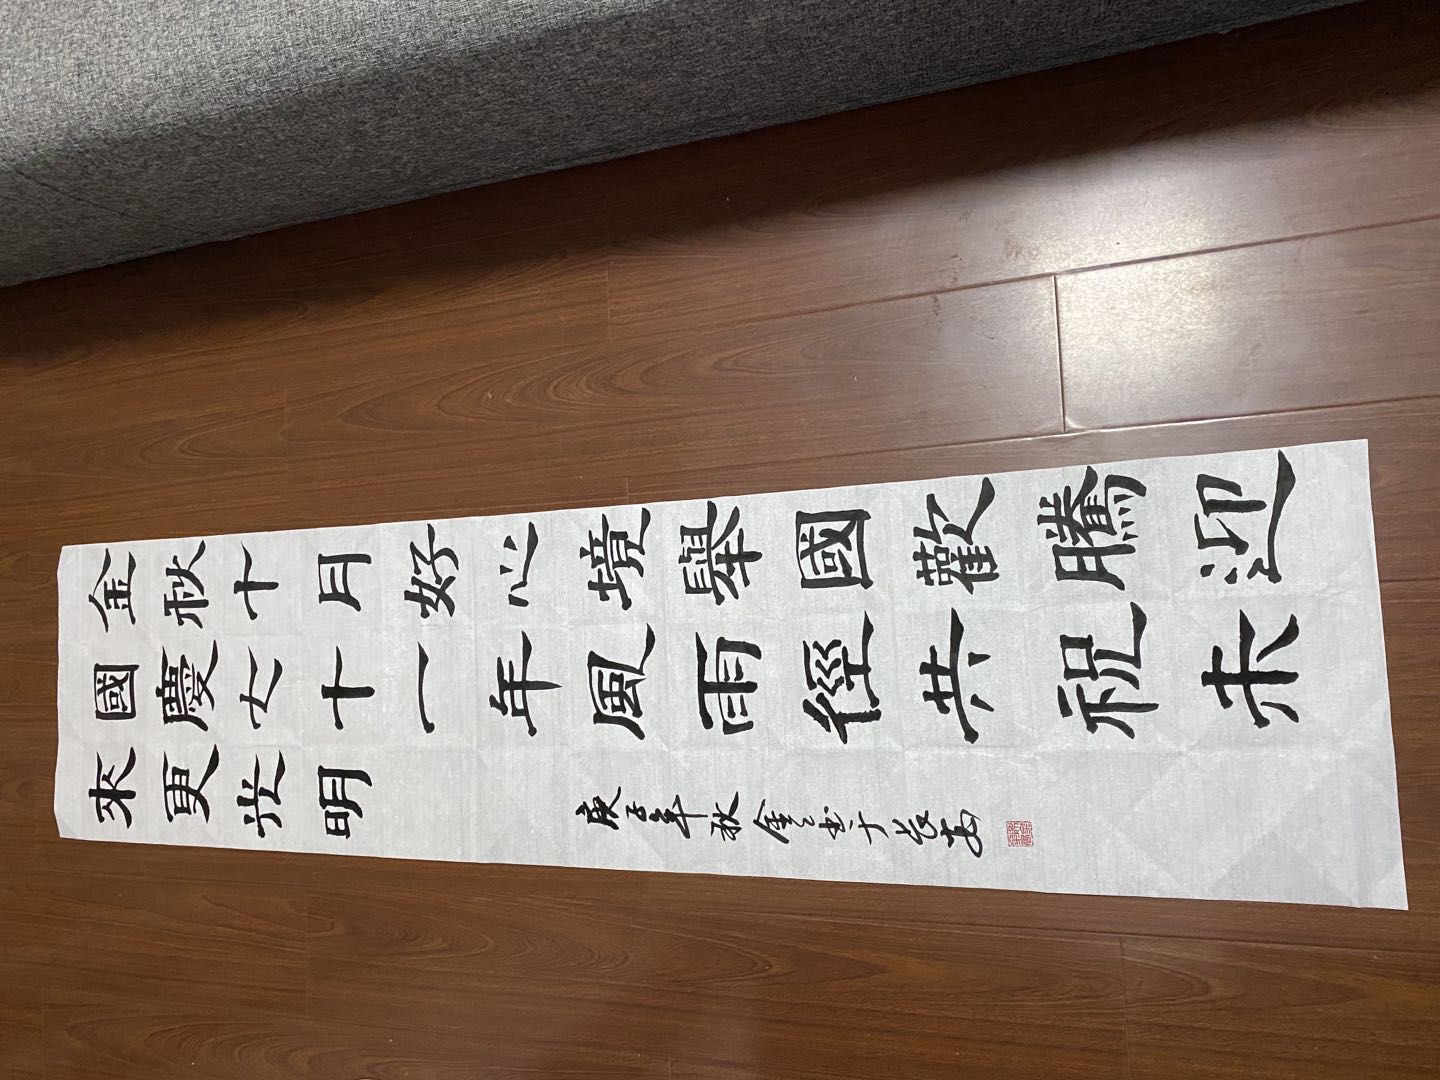 金秋十月好心境舉國歡騰迎
國慶七十一年風雨經共祝未
來更光明
庚子年秋书于长安